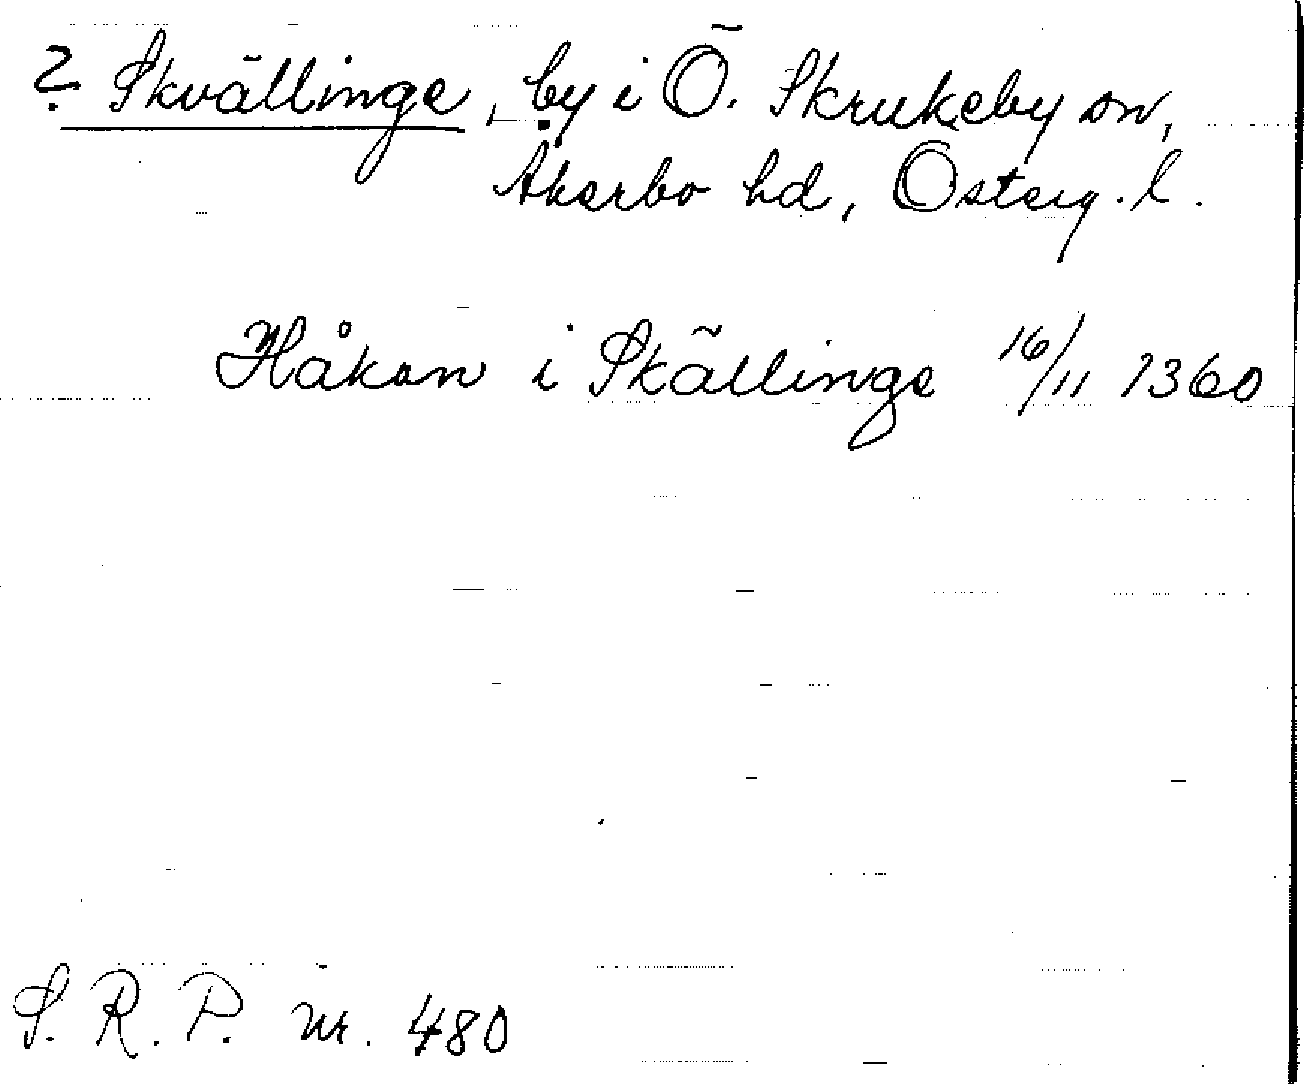 ? Skvällinge, by i Ö. Skrukeby sn,
Åkerbo hd, Österg. l.
Håkan i Skällinge 16/11 1360
S. R. P. nr. 480